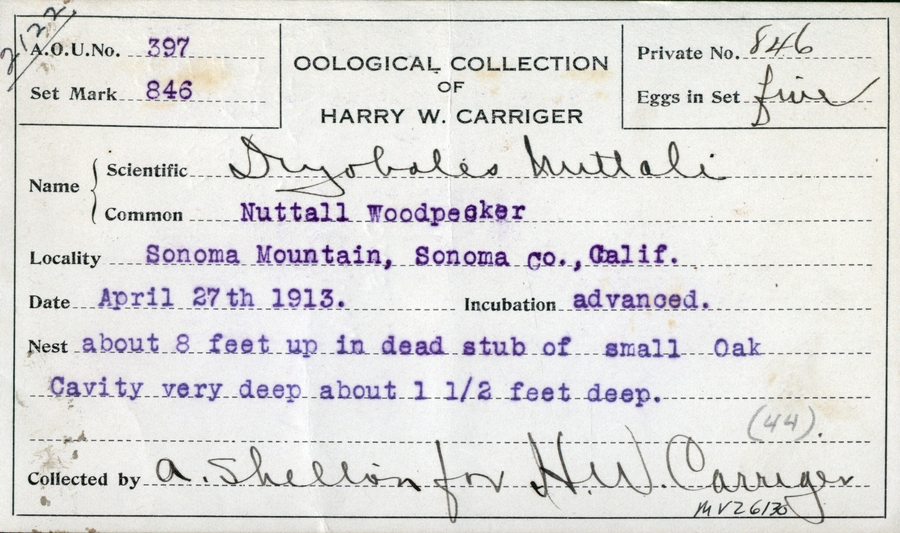 2122
A.O.U.No. 397
Set Mark 846
OOLOGICAL COLLECTION
OF
HARRY W. CARRIGER
Private No. 846
Eggs in Set five
Name
Scientific Dryobates Nuttali
Common Nuttall Woodpecker
Locality Sonoma Mountain, Sonoma co., Calif.
Date April 27th 1913. Incubation advanced.
Nest about 8 feet up in dead stub of small Oak
Cavity very deep about 1 1/2 feet deep.
(44).
Collected by A. Shelton for H.W. Carriger
MVZ 6130